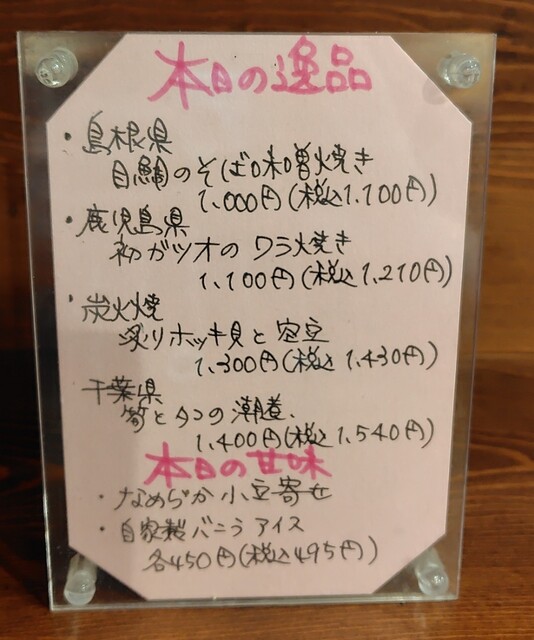 本日の逸品
・島根県
目鯛のそば味噌焼き
1,000円(税込1,100円)
・鹿児島県
初ガツオのワラ焼き
1,100円(税込1,210円)
・炭火焼
炙りホッキ貝と空豆
1,300円(税込1,430円)
千葉県
筍とタコの潮煮
1,400円(税込1,540円)
本日の甘味
・なめらか小豆寄せ
・自家製バニラアイス
各450円(税込495円)